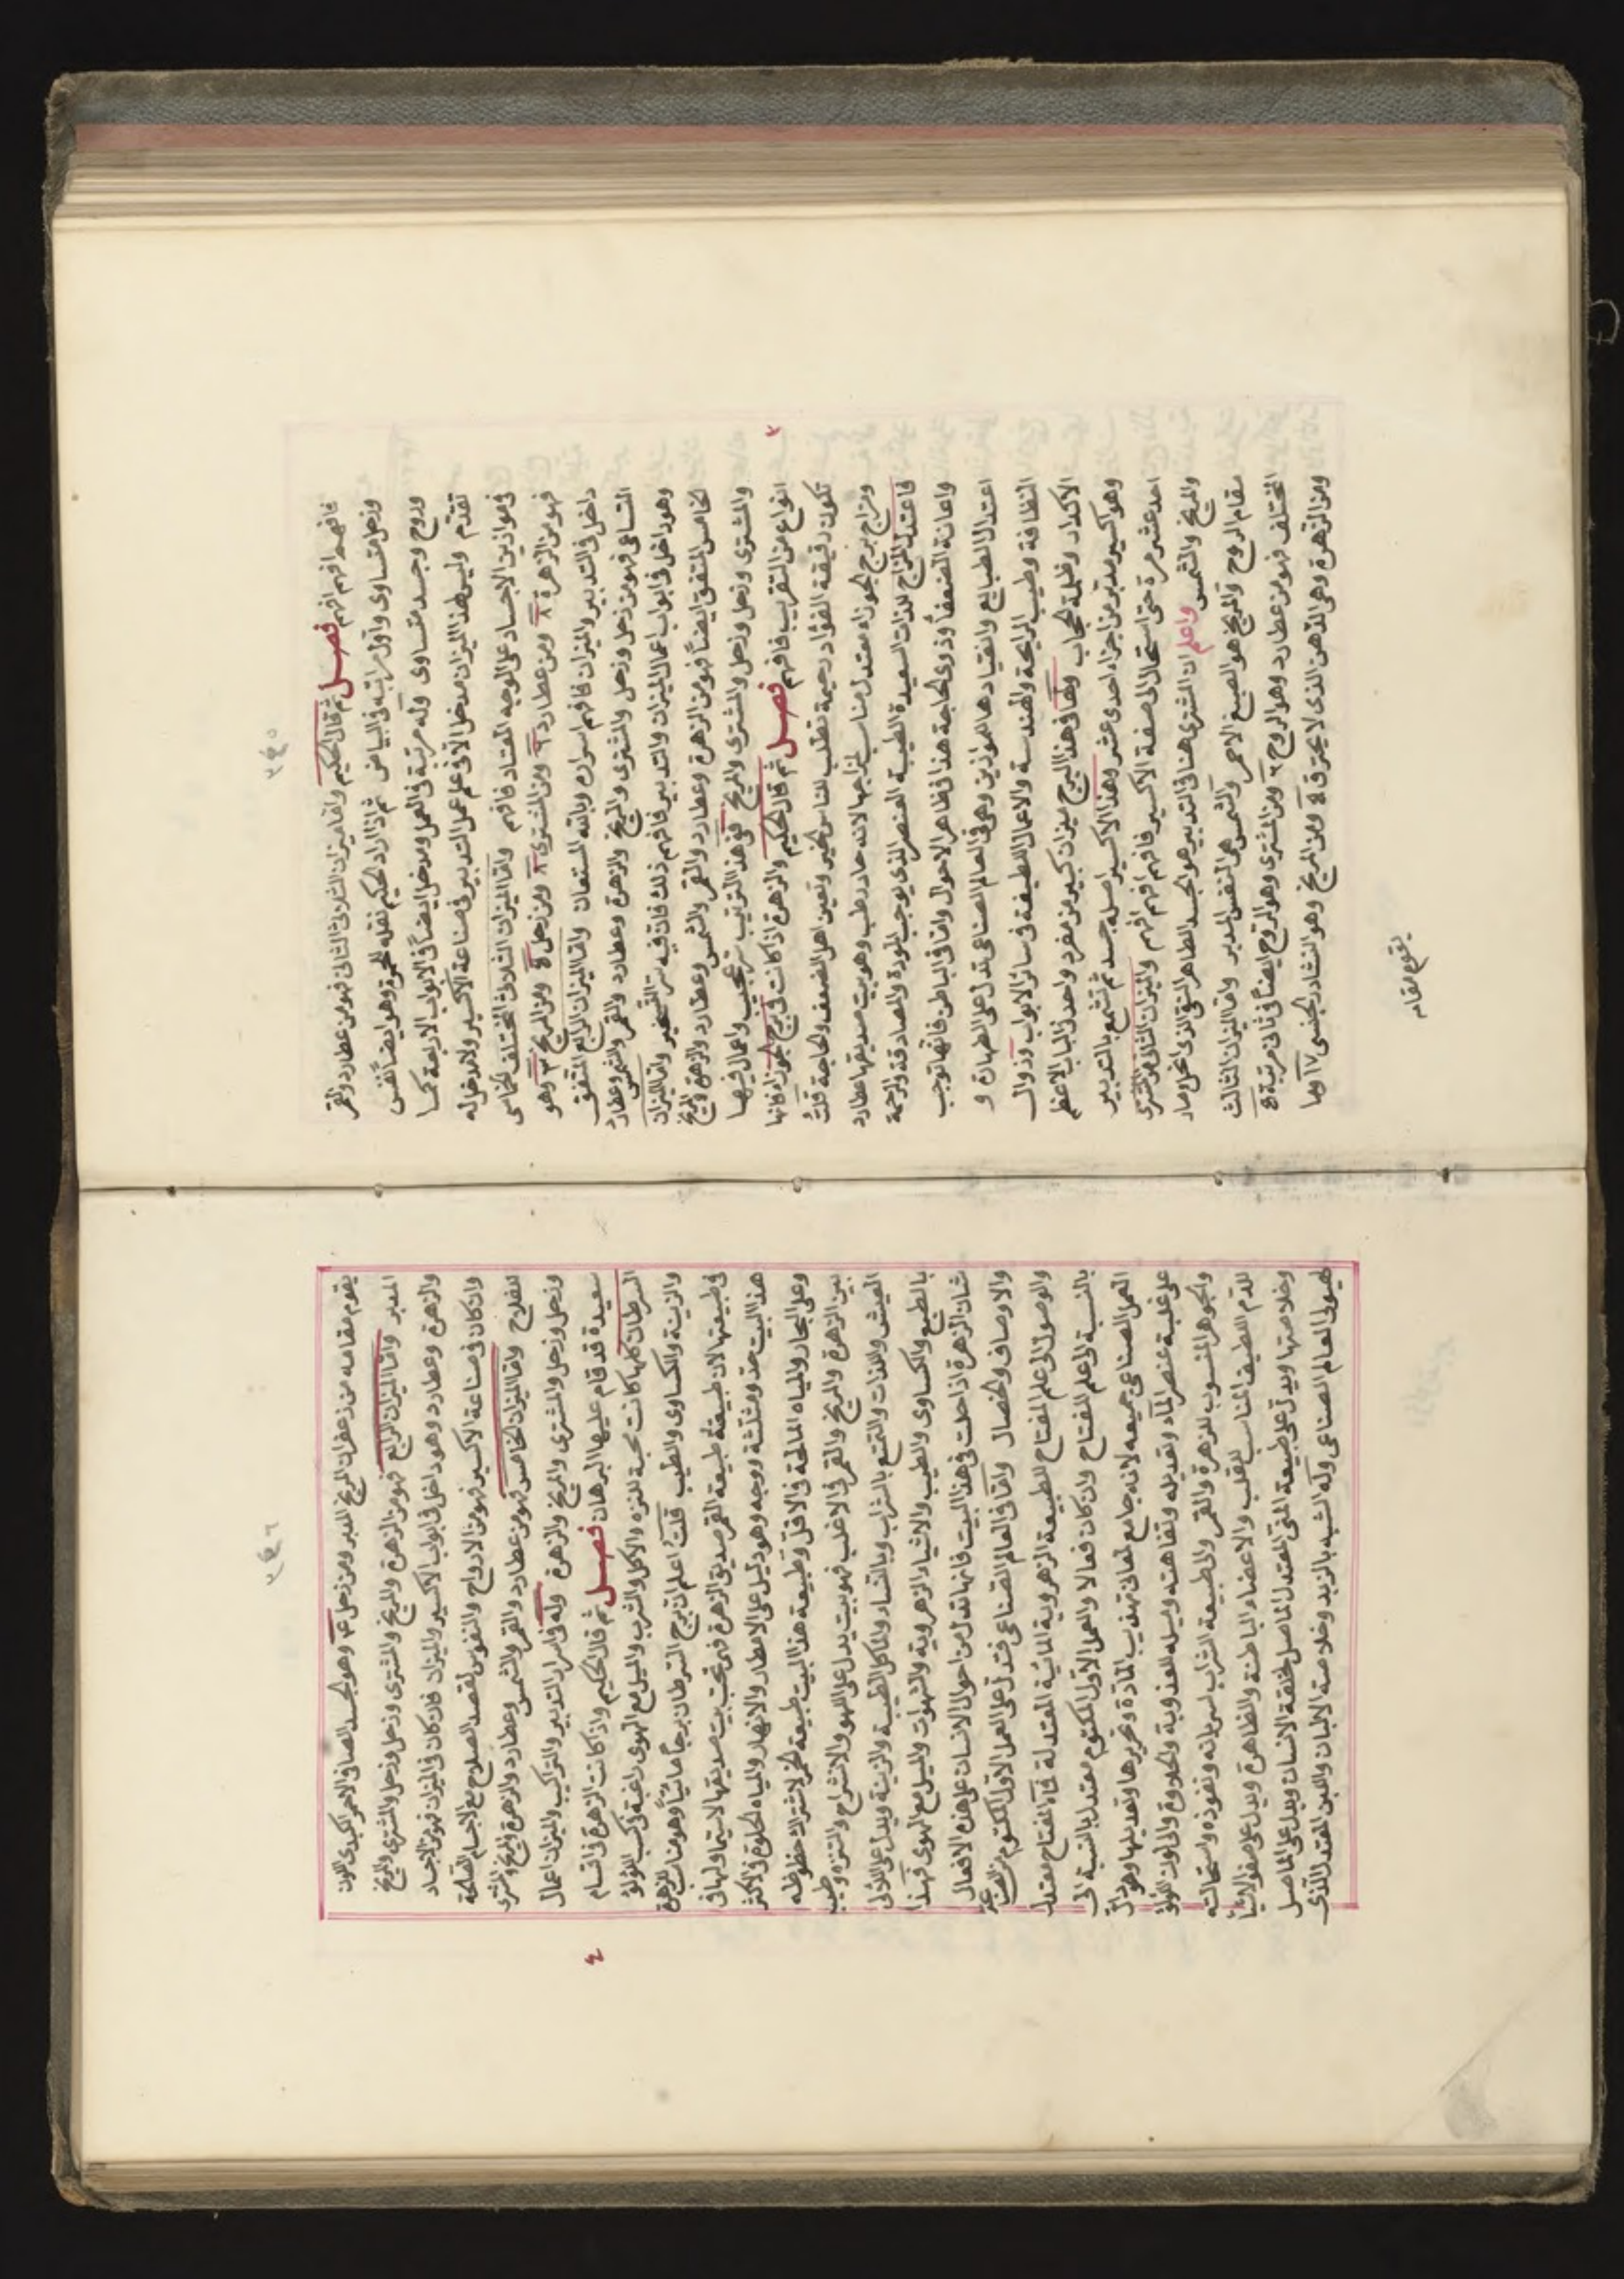 ٣٤٥
فافهم افهم افهم فصل ثم قال الحكيم واما ميزان الثلاثى الثانى فهو من عطارد والقمر
وزحل متساوى واول مراتبه فى البياض ثم اذا اراد الحكيم نقله للحمرة وهو ايضا نفس
وروح وجسد متساوى وله مرتبة فى العمل ومدخل ايضا فى الابواب الاربعة كما
تقدم وليس لهذا الميزان مدخل الا فى علم عمل التدبير فى صناعة الاكسير ولا مدخل له
فى موازين الاجساد على الوجه المعتاد فافهم واما الميزان الثلاث المختلف الخماسى
فهو من الزهرة ٨ ومن عطارد ٦ ومن المشترى ٨ ومن زحل ٥ ومن المريخ ٣ وهو
داخل فى التدبير والميزان فافهم اسراره وبالله المستعان واما الميزان الرابع المتفق
التساعى فهو من زحل وزحل والمشترى والمريخ والزهرة وعطارد والقمر والشمس وعطارد
وهو داخل فى ابواب اعمال الميزان والتدبير فافهم ذلك فان فيه سر التسخير واما الميزان
الخامس المتفق ايضا فهو من الزهرة وعطارد والقمر والشمس وعطارد والزهرة والمريخ
والمشترى وزحل وزحل والمشترى والمريخ ففى هذا الترتيب سر عجيب واعمال فيها
انواع من التقريب فافهم فصل ثم قال الحكيم والزهرة اذا كانت فى برج الجوزاء فانها
٣
تكون رقيقة الفؤاد رحيمة تطلب للناس الخير وتعين اهل الضعف والحاجة قلت
ومزاج برج الجوزاء معتدل مناسب لمزاجها لانه حار رطب وهو بيت صديقها عطارد
فاعتدل المزاج للذات السعيدة الطيبة العنصر الذى يوجب المودة والمصادقة والرحمة
واعانة الضعفاء وذوى الحاجة هذا فى ظاهر الاحوال واما فى الباطن فانها توجب
اعتدال الطبايع وانقيادها للموازين وهى فى العالم الصناعى تدل على الطهارة و
النظافة وطيب الرايحة والهندسة والاعمال اللطيفة فى سائر الابواب وزوال
الاكدار وظلمة الحجاب ولها فى هذا البرج ميزان كبير من مفرد واحد فى الباب الاعظم
وهو اكسير مدبر من اجزاء احدى عشر وهذا الاكسير اصله جسد ثم تشمع بالتدبير
احد عشر مرة حتى استحال الى صفة الاكسير فافهم افهم افهم والميزان الثانى من المشترى
والمريخ والشمس واعلم ان المشترى هنا فى التدبير هو الجسد الطاهر النقى الذى انحل وصار
مقام الروح والمريخ هو الصبغ الاحمر والشمس هى النفس المدبر واما الميزان الثالث
المختلف فهو من عطارد وهو الروح ٦ ومن المشترى وهو الروح ايضا فى ثانى مرتبة ٥
ومن الزهرة وهى الدهن الذى لا يحترق ٥ ومن المريخ وهو النشادر الجنسى ١٧ وما
يقوم مقامه
٣٤٦
يقوم مقامه من زعفران المريخ المدبر ومن زحل ٤ وهو الجسد الصافى الاحمر الكبدى اللون
المدبر واما الميزان الرابع فهو من الزهرة والمريخ والمشترى وزحل وزحل والمشترى والمريخ
والزهرة وعطارد وهو داخل فى ابواب الاكسير والميزان فان كان فى الميزان فهو من الاجساد
وان كان فى صناعة الاكسير فهو من الارواح والنفوس لقصد الصلاح مع الاجسام القائمة
للفلاح واما الميزان الخامس فهو من عطارد والقمر والشمس وعطارد والزهرة والمريخ والمشترى
وزحل وزحل والمشترى والمريخ والزهرة وله فى اسرار التدبير والتراكيب والميزان اعمال
سعيدة قد قام عليها البرهان فصل ثم قال الحكيم واذا كانت الزهرة فى اقسام
٤
السرطان كلها كانت محبة للنزه والاكل والشرب والميل مع الهوى راغبة فى كسب اللؤلؤ
والزينة والكساوى والطيب قلت اعلم ان برج السرطان برجا مائيا وهو مناسب للزهرة
فى طبيعتها لان طبيعته طبيعة القمر صديق الزهرة فهى تحت بيت صديقها لا سيما ولها فى
هذا البيت حد ومثلثة ووجه وهو دليل على الامطار والانهار والمياه الحلوة فى الاكثر
وعلى البحار والمياه المالحة فى الاقل وطبيعة هذا البيت طبيعة الخمر لاشتراك حظوظه
بين الزهرة والمريخ والقمر فى الاغلب فهو بيت يدل على اللهو والانشراح والتنزه وطيب
العيش واللذات والتمتع بالشراب وبالنساء والماكل الطيبة والزينة ويدل على اللؤلؤ
بالطبع والكساوى والطيب والاشياء الزهروية والشهوات والميل مع الهوى فهذا
شان الزهرة اذا حلت فى هذا البيت فانها تدل من احوال الانسان على هذه الافعال
والاوصاف والخصال واما فى العالم الصناعى فتدل على العمل الاول المكتوم من الصناعة
والوصول الى علم المفتاح للطبيعة الزهروية المائية المعتدلة فان المفتاح معتدل
بالنسبة الى علم المفتاح وان كان فعالا والعمل الاول المكتوم معتدل بالنسبة الى
العمل الصناعى جميعه لانه جامع لمعانى تهذيب المادة وتحريرها وتعديلها وهو دال
على غلبة عنصر الماء وتعديله وتفاهته وميله للعذوبة والحلاوة والى لون اللؤلؤ
والجوهر المنسوب للزهرة والقمر والى طبيعة الشراب لسريانه ونفوذه واستحالته
للدم اللطيف المناسب للقلب والاعضاء الباطنة والظاهرة ويدل على صفو الاشياء
وخلاصتها ويدل على طبيعة المنى المعتدل الحاصل لخلقة الانسان ويدل على الحاصل
لهيولى العالم الصناعى وله الشبه بالزبد وخلاصة الالبان واللبن المعتدل الذى